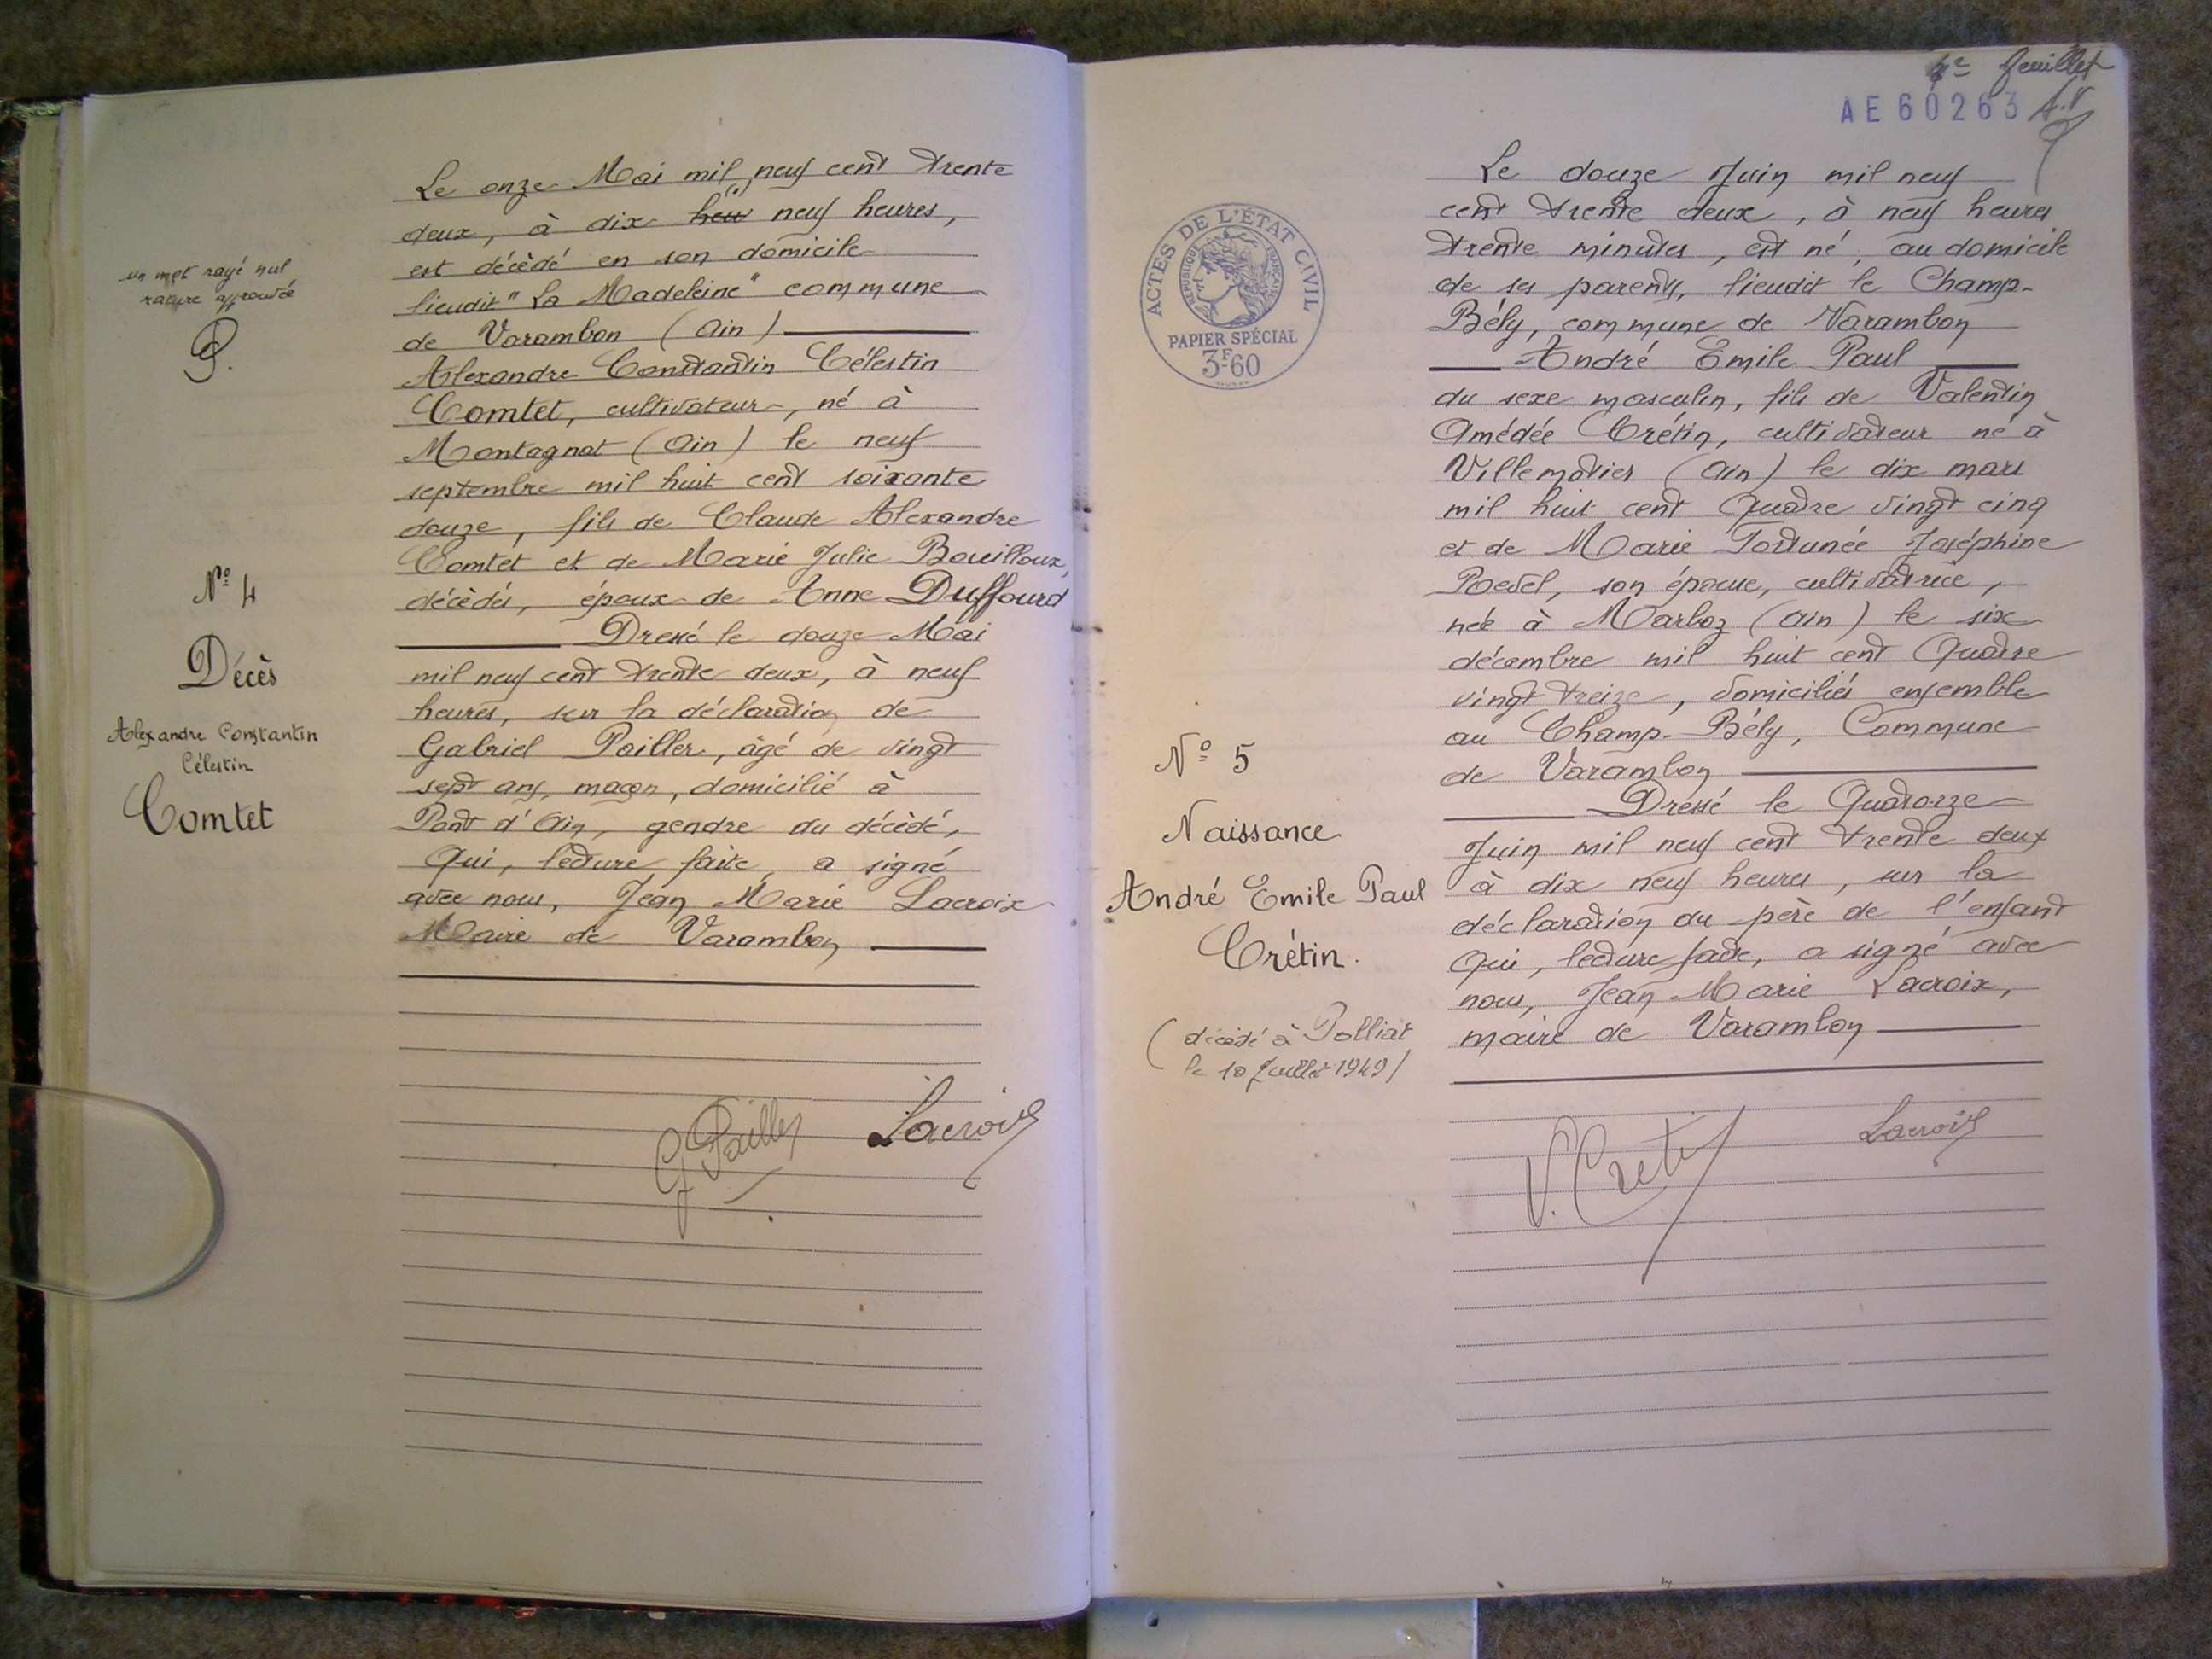 un mot rayé nul
rature approuvée
N° 4
Décès
Alexandre Constantin
Célestin
Comtet
Le onze Mai mil neuf cent trente
deux, à dix heu neuf heures,
est décédé en son domicile
lieudit "La Madeleine" commune
de Varambon (Ain)
Alexandre Constantin Célestin
Comtet, cultivateur, né à
Montagnat (Ain) le neuf
septembre mil huit cent soixante
douze, fils de Claude Alexandre
Comtet et de Marie Julie Bouilloux,
décédés, époux de Anne Duffourd
Dressé le douze Mai
mil neuf cent trente deux, à neuf
heures, sur la déclaration de
Gabriel Pailler, âgé de vingt
sept ans, maçon, domicilié à
Pont d'Ain, gendre du décédé,
Qui, lecture faite, a signé
avec nous, Jean Marie Lacroix
Maire de Varambon
G Pailler
Lacroix
4e feuillet
AE60263
ACTES DE L'ÉTAT CIVIL
RÉPUBLIQUE FRANÇAISE
PAPIER SPÉCIAL
3F60
N° 5
Naissance
André Emile Paul
Crétin.
(décédé à Polliat
le 10 Juillet 1949)
Le douze Juin mil neuf
cent trente deux, à neuf heures
trente minutes, est né, au domicile
de ses parents, lieudit le Champ-
Bély, commune de Varambon
André Emile Paul
du sexe masculin, fils de Valentin
Amédée Crétin, cultivateur né à
Villemotier (Ain) le dix mars
mil huit cent Quatre vingt cinq
et de Marie Fortunée Joséphine
Revel, son épouse, cultivatrice,
née à Marboz (Ain) le six
décembre mil huit cent Quatre
vingt treize, domiciliés ensemble
au Champ-Bély, Commune
de Varambon
Dressé le Quatorze
Juin mil neuf cent trente deux
à dix neuf heures, sur la
déclaration du père de l'enfant
Qui, lecture faite, a signé avec
nous, Jean Marie Lacroix,
maire de Varambon
V. Cretin
Lacroix